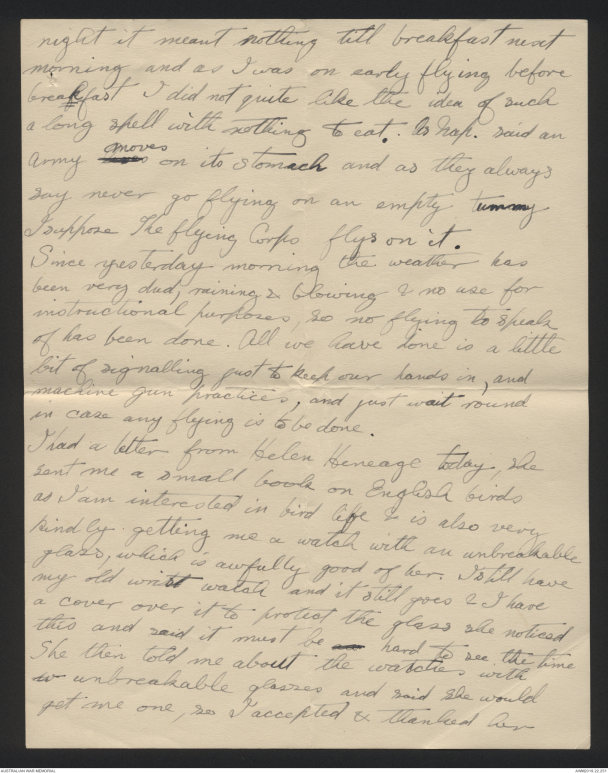 night it meant nothing till breakfast next
morning and as I was on early flying before
breakfast I did not quite like the idea of such
a long spell with nothing to eat. As Nap. said an
army moves on its stomach and as they always
say never go flying on an empty tummy
I suppose The flying Corps flys on it.
Since yesterday morning the weather has
been very dud, raining & blowing & no use for
instructional purposes, so no flying to speak
of has been done. All we have done is a little
bit of signalling just to keep our hands in, and
machine gun practices, and just wait round
in case any flying is to be done.
I had a letter from Helen Heneage today, she
sent me a small book on English birds
as I am interested in bird life & is also very
kindly getting me a watch with an unbreakable
glass, which is awfully good of her. I still have
my old wrist watch and it still goes & I have
a cover over it to protect the glass she noticed
this and said it must be hard to see the time
She then told me about the watches with
unbreakable glasses and said she would
get me one, so I accepted & thanked her
AUSTRALIAN WAR MEMORIAL